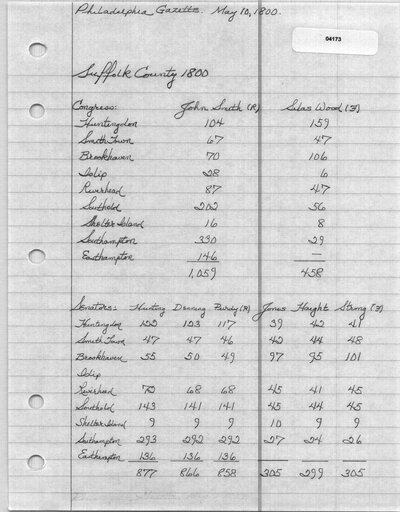 Philadelphia Gazette. May 10, 1800.
04173
Suffolk County 1800
Congress: John Smith (R) Silas Wood (F)
Huntingdon 104 159
Smith Town 67 47
Brookhaven 70 106
Islip 28 6
Riverhead 87 47
Southold 202 56
Shelter Island 16 8
Southampton 330 29
Easthampton 146 —
1,059 458
Senators: Hunting Denning Purdy (R) Jones Haight Strong (F)
Huntingdon 122 123 117 39 42 41
Smith Town 47 47 46 42 44 48
Brookhaven 55 50 49 97 95 101
Islip
Riverhead 72 68 68 45 41 45
Southold 143 141 141 45 44 45
Shelter Island 9 9 9 10 9 9
Southampton 293 292 292 27 24 26
Easthampton 136 136 136 — — —
877 866 858 305 299 305